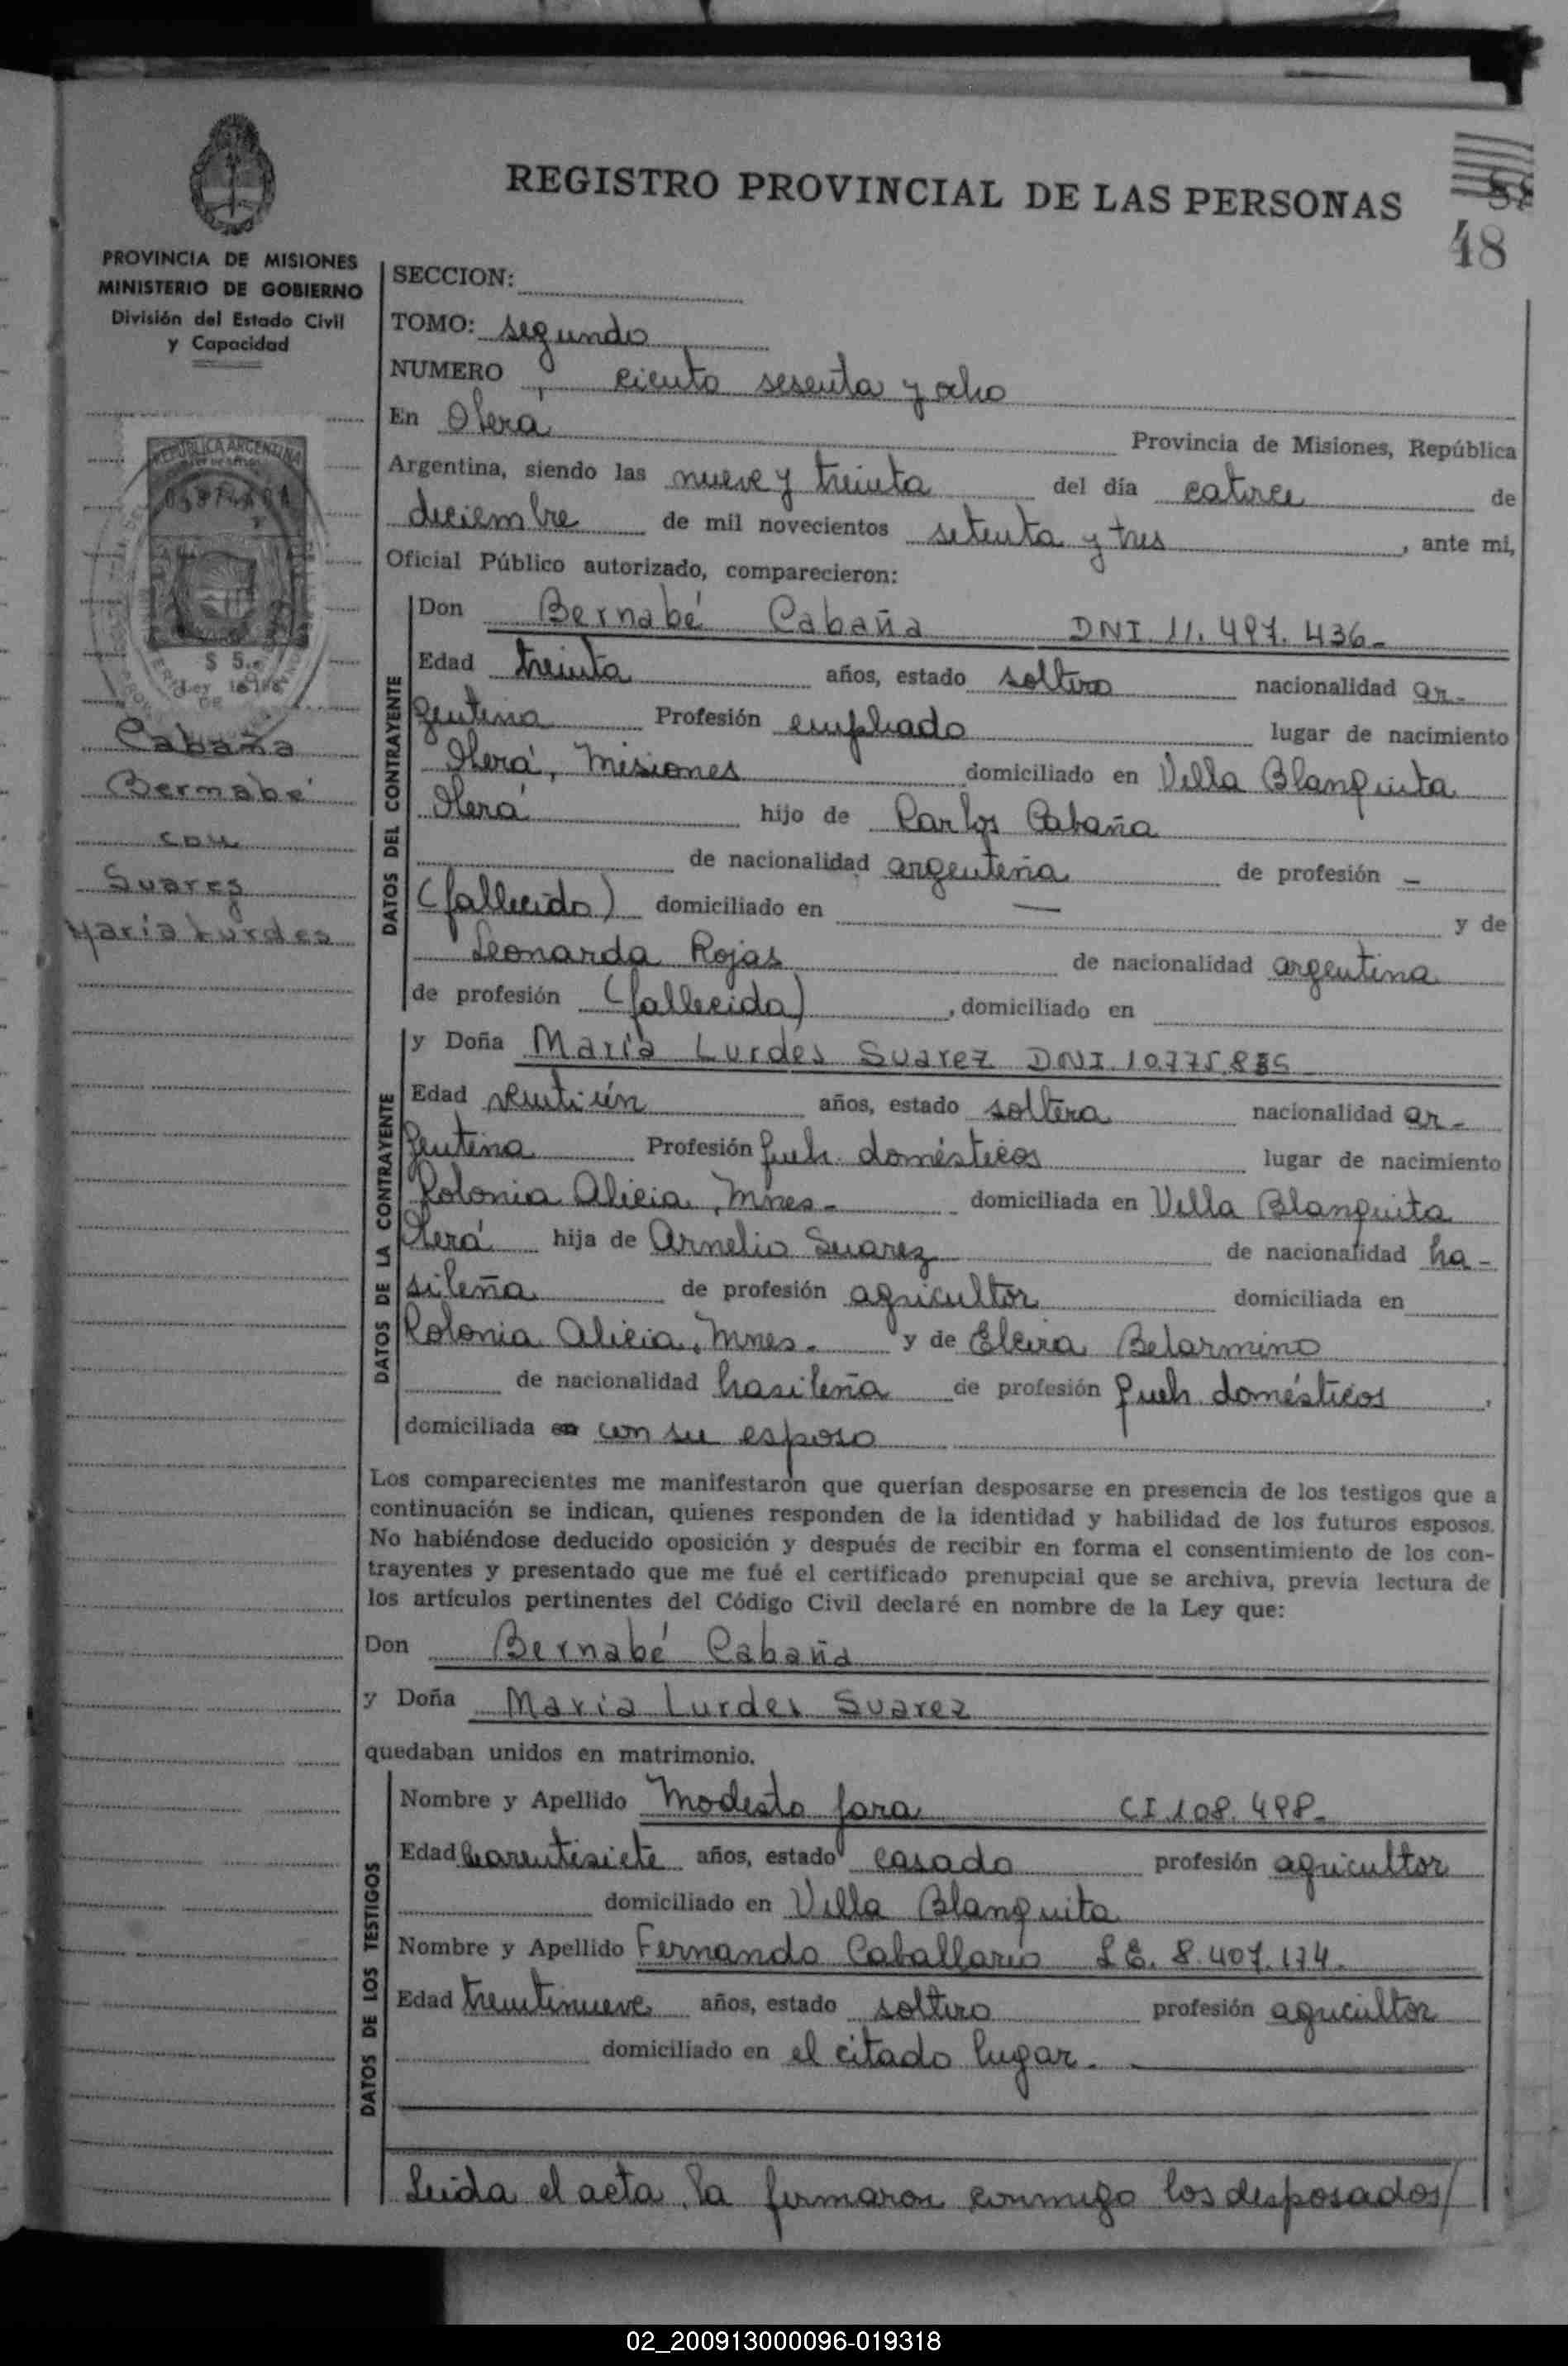 REGISTRO PROVINCIAL DE LAS PERSONAS
48
PROVINCIA DE MISIONES
MINISTERIO DE GOBIERNO
División del Estado Civil
y Capacidad
REPUBLICA ARGENTINA
$ 5.-
Cabaña
Bernabé
con
Suarez
María Lurdes
SECCION:
TOMO: segundo
NUMERO ciento sesenta y ocho
En Oberá Provincia de Misiones, República
Argentina, siendo las nueve y treinta del día catorce de
diciembre de mil novecientos setenta y tres, ante mi,
Oficial Público autorizado, comparecieron:
DATOS DEL CONTRAYENTE
Don Bernabé Cabaña DNI 11.497.436-
Edad treinta años, estado soltero nacionalidad ar-
gentina Profesión empleado lugar de nacimiento
Oberá, Misiones domiciliado en Villa Blanquita
Oberá hijo de Carlos Cabaña
de nacionalidad argenteña de profesión -
(fallecido) domiciliado en — y de
Leonarda Rojas de nacionalidad argentina
de profesión (fallecida), domiciliado en
DATOS DE LA CONTRAYENTE
y Doña María Lurdes Suarez DNI 10.775.835
Edad veintiún años, estado soltera nacionalidad ar-
gentina Profesión queh. domésticos lugar de nacimiento
Colonia Alicia, Mnes- domiciliada en Villa Blanquita
Oberá hija de Arnelio Suarez de nacionalidad bra-
sileña de profesión agricultor domiciliada en
Colonia Alicia, Mnes. y de Elvira Belarmino
de nacionalidad brasileña de profesión queh domésticos,
domiciliada en con su esposo
Los comparecientes me manifestaron que querían desposarse en presencia de los testigos que a
continuación se indican, quienes responden de la identidad y habilidad de los futuros esposos.
No habiéndose deducido oposición y después de recibir en forma el consentimiento de los con-
trayentes y presentado que me fué el certificado prenupcial que se archiva, previa lectura de
los artículos pertinentes del Código Civil declaré en nombre de la Ley que:
Don Bernabé Cabaña
y Doña María Lurdes Suarez
quedaban unidos en matrimonio.
DATOS DE LOS TESTIGOS
Nombre y Apellido Modesto Jara CI 108.498-
Edad cuarentisiete años, estado casado profesión agricultor
domiciliado en Villa Blanquita
Nombre y Apellido Fernando Caballario L E. 8.407.174.
Edad treintinueve años, estado soltero profesión agricultor
domiciliado en el citado lugar.
Leida el acta, la firmaron conmigo los desposados/
02_200913000096-019318